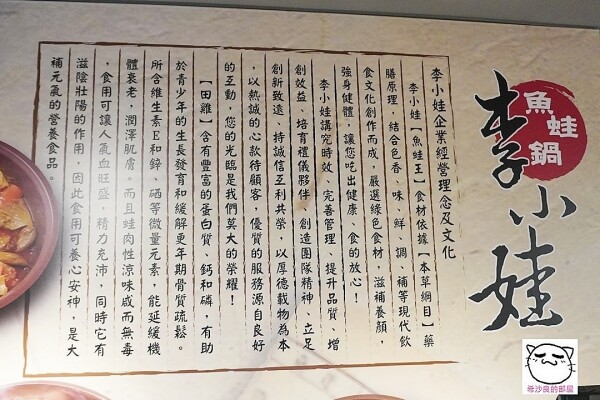 李小娃
魚蛙鍋
李小娃企業經營理念及文化
李小娃【魚蛙王】食材依據【本草綱目】藥
膳原理，結合色香、味、鮮、調、補等現代飲
食文化創作而成，嚴選綠色食材，滋補養顏，
強身健體，讓您吃出健康、食的放心！
李小娃講究時效、完善管理、提升品質、增
創效益、培育禮儀夥伴、創造團隊精神、立足
創新致遠、持誠信互利共榮，以厚德載物為本
，以熱誠的心款待顧客，優質的服務源自良好
的互動，您的光臨是我們莫大的榮耀！
【田雞】含有豐富的蛋白質、鈣和磷，有助
於青少年的生長發育和緩解更年期骨質疏鬆。
所含維生素E和鋅、硒等微量元素，能延緩機
體衰老，潤澤肌膚。而且蛙肉性涼味咸而無毒
，食用可讓人氣血旺盛，精力充沛，同時它有
滋陰壯陽的作用，因此食用可養心安神，是大
補元氣的營養食品。
希沙良的部屋